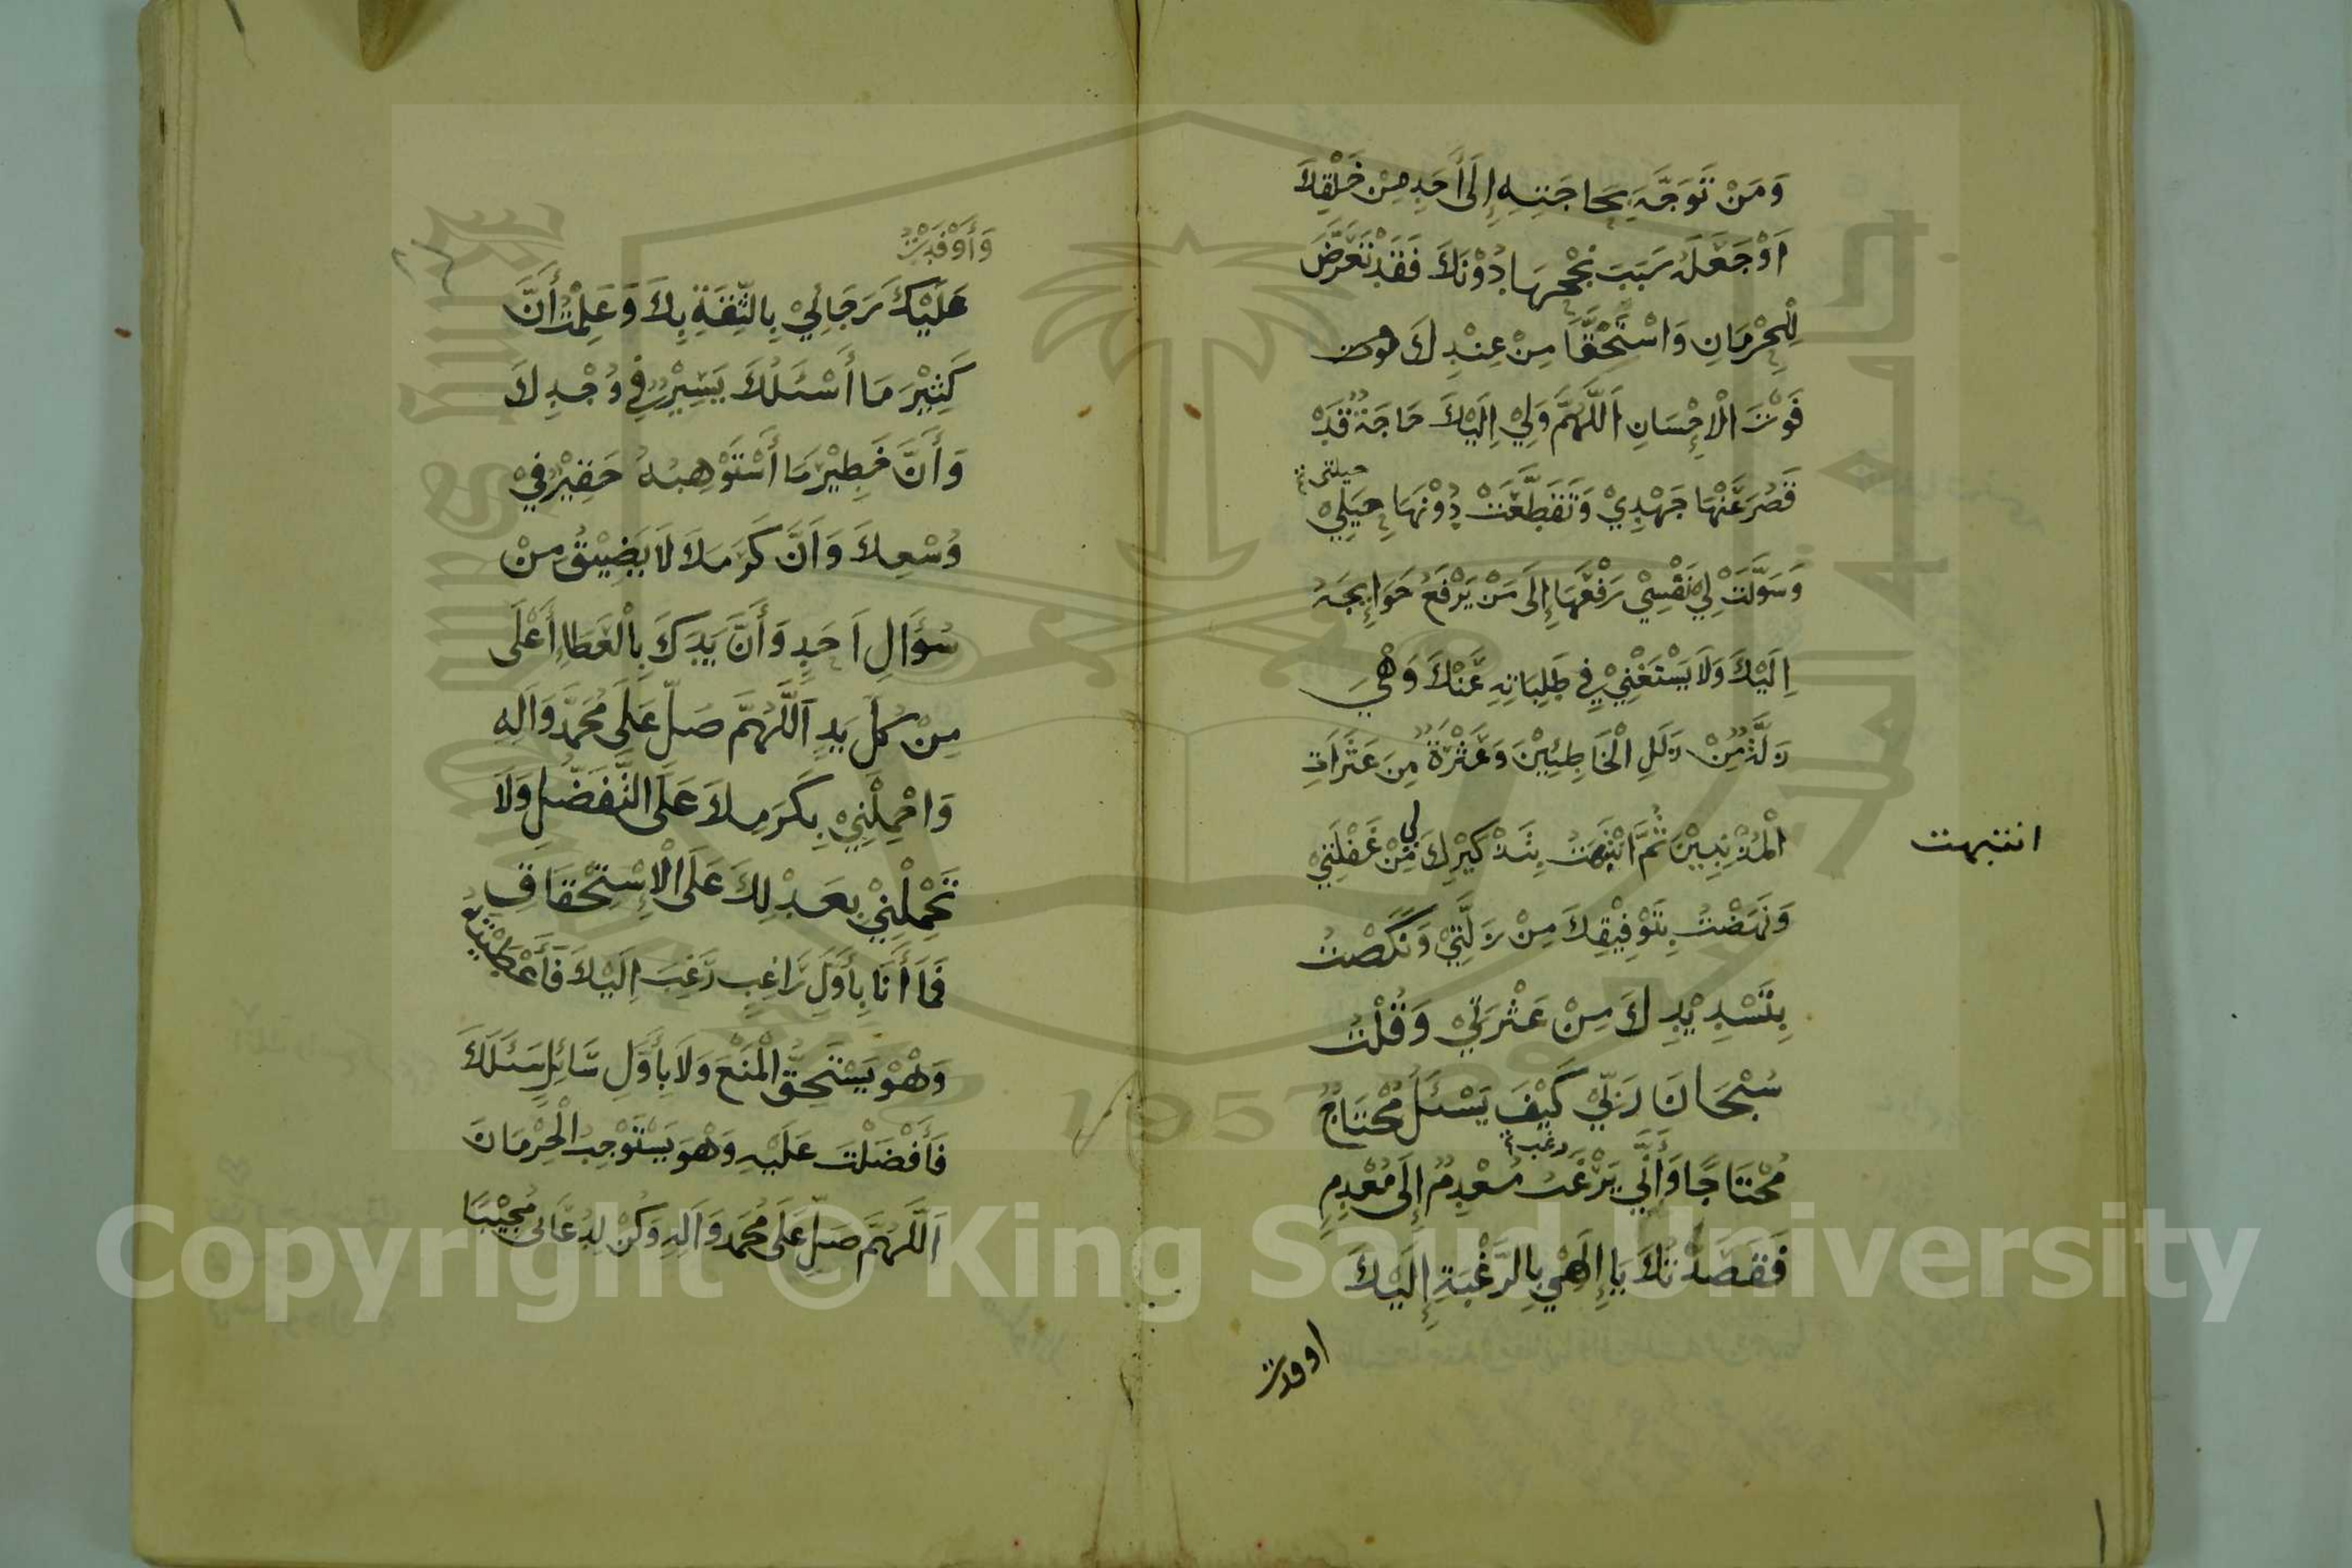 وَمَنْ تَوَجَّهَ بِحَاجَتِهِ إِلَى أَحَدٍ مِنْ خَلْقِكَ
اَوْ جَعَلَهُ سَبَبَ نُجْحِهَا دُوْنَكَ فَقَدْ تَعَرَّضَ
لِلْحِرْمَانِ وَاسْتَحَقَّ مِنْ عِنْدِكَ فوت
فَوْتَ الْاِحْسَانِ اَللّٰهُمَّ وَلِيْ اِلَيْكَ حَاجَةٌ قَدْ
حيلتي
قَصُرَ عَنْهَا جَهْدِيْ وَتَقَطَّعَتْ دُوْنَهَا حِيَلِيْ
وَسَوَّلَتْ لِيْ نَفْسِيْ رَفْعَهَا إِلَى مَنْ يَرْفَعُ حَوَائِجَهُ
اِلَيْكَ وَلَا يَسْتَغْنِيْ فِي طَلِبَاتِهِ عَنْكَ وَهْيَ
زَلَّةٌ مِنْ زَلَلِ الْخَاطِئِيْنَ وَعَثْرَةٌ مِنَ عَثَرَاتِ
الْمُذْنِبِيْنَ ثُمَّ انْتَبَهْتُ بِتَذْكِيْرِكَ لِي مِنْ غَفْلَتِيْ
انتبهت
وَنَهَضْتُ بِتَوْفِيْقِكَ مِنْ زَلَّتِيْ وَنَكَصْتُ
بِتَسْدِيْدِكَ مِنْ عَثْرَتِيْ وَقُلْتُ
سُبْحَانَ رَبِّيْ كَيْفَ يَسْئَلُ مُحْتَاجٌ
رغب
مُحْتَاجًا وَأَنَّى يَرْغَبُ مُعْدِمٌ إِلَى مُعْدِمٍ
فَقَصَدْتُكَ يَا إِلَهِيْ بِالرَّغْبَةِ إِلَيْكَ
اوفدت
وَأَوْفَدْتُ
عَلَيْكَ رَجَائِيْ بِالثِّقَةِ بِكَ وَعَلِمْتُ أَنَّ
كَثِيْرَ مَا أَسْئَلُكَ يَسِيْرٌ فِي وُجْدِكَ
وَأَنَّ خَطِيْرَ مَا أَسْتَوْهِبُكَ حَقِيْرٌ فِيْ
وُسْعِكَ وَاَنَّ كَرَمَكَ لَا يَضِيْقُ مِنْ
سُؤَالِ اَحَدٍ وَأَنَّ يَدَكَ بِالْعَطَاءِ أَعْلَى
مِنْ كُلِّ يَدٍ اَللّٰهُمَّ صَلِّ عَلَى مُحَمَّدٍ وَآلِهِ
وَاحْمِلْنِيْ بِكَرَمِكَ عَلَى التَّفَضُّلِ وَلَا
تَحْمِلْنِيْ بِعَدْلِكَ عَلَى الْاِسْتِحْقَاقِ
فَمَا أَنَا بِأَوَّلِ رَاغِبٍ رَغِبَ اِلَيْكَ فَأَعْطَيْتَهُ
وَهْوَ يَسْتَحِقُّ الْمَنْعَ وَلَا بِأَوَّلِ سَائِلٍ سَئَلَكَ
فَأَفْضَلْتَ عَلَيْهِ وَهْوَ يَسْتَوْجِبُ الْحِرْمَانَ
اَللّٰهُمَّ صَلِّ عَلَى مُحَمَّدٍ وَآلِهِ وَكُنْ لِدُعَائِي مُجِيْبًا
1957
Copyright © King Saud University